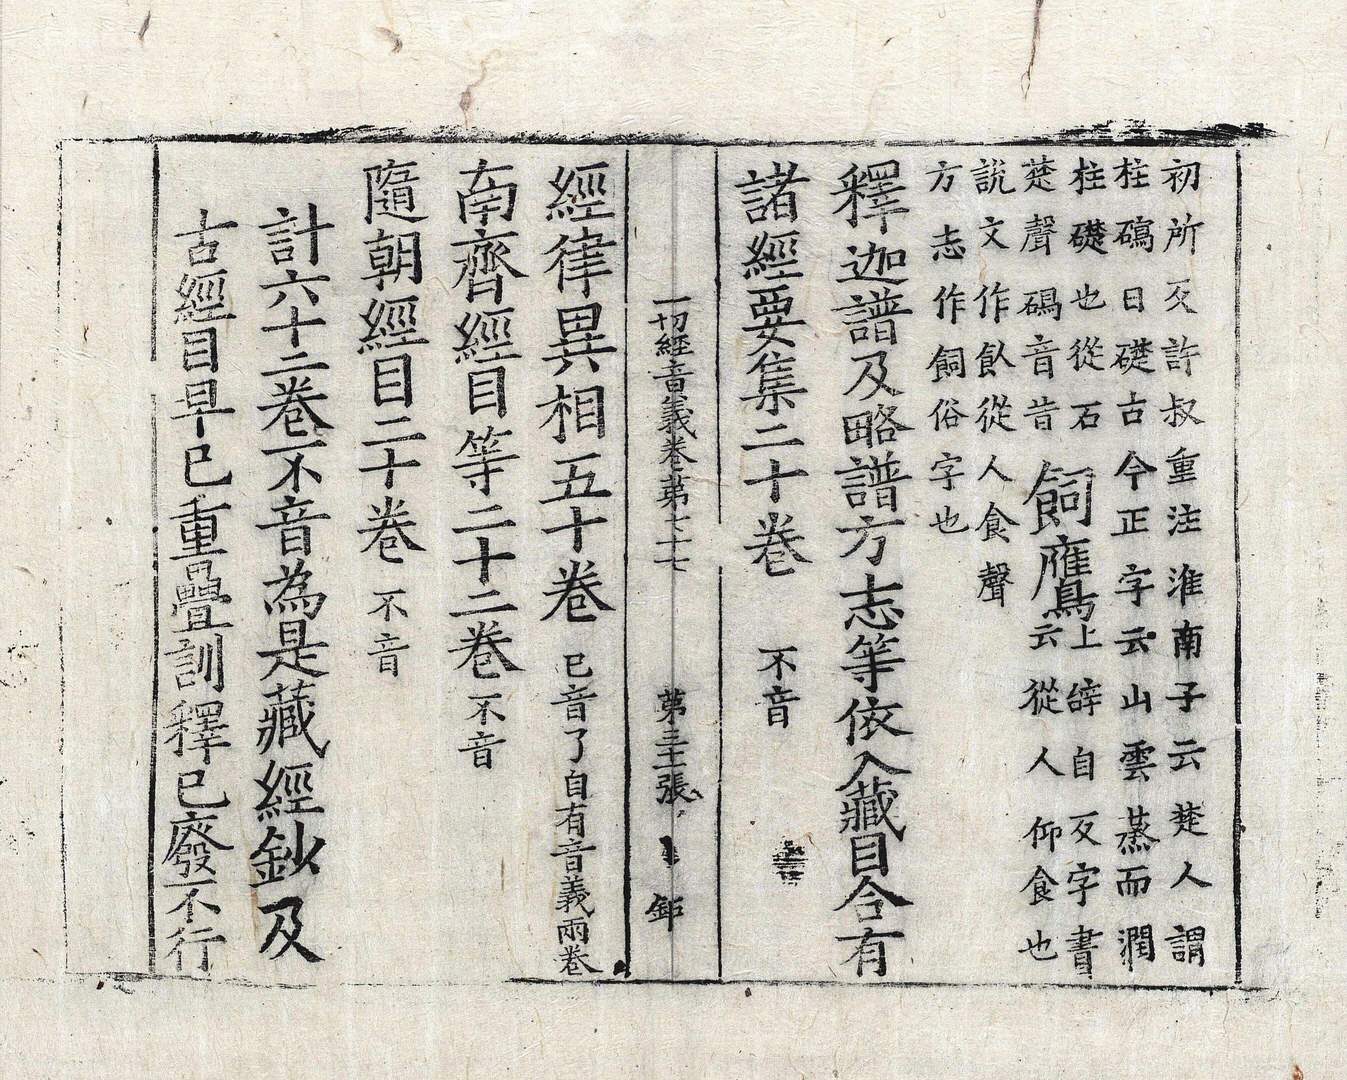 初所反許叔重注淮南子云楚人謂
柱碣曰礎古今正字云山雲蒸而潤
柱礎也從石
楚聲碣音昔
飼鷹
上辝自反字書
云從人仰食也
說文作飤從人食聲
方志作飼俗字也
釋迦譜及略譜方志等依入藏目合有
諸經要集二十卷 不音
一切經音義卷第七十七 第三十張 鉅
經律異相五十卷 已音了自有音義兩卷
南齊經目等二十二卷 不音
隨朝經目二十卷 不音
計六十二卷不音為是藏經鈔及
古經目早已重疊訓釋已廢不行